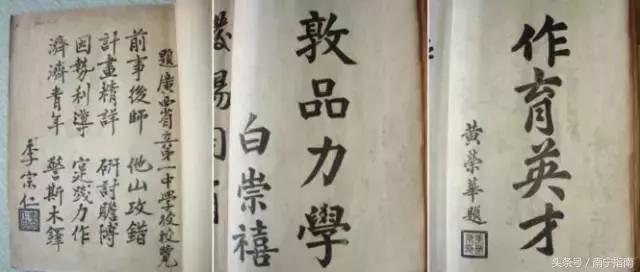 題廣西省立第一中學校校覽
前事後師 他山攻錯
計畫精詳 研討贍博
因勢利導 寔踐力作
濟濟青年 警斯木鐸
李宗仁
敦品力學
白崇禧
作育英才
黄榮華題
头条号 / 南宁指南